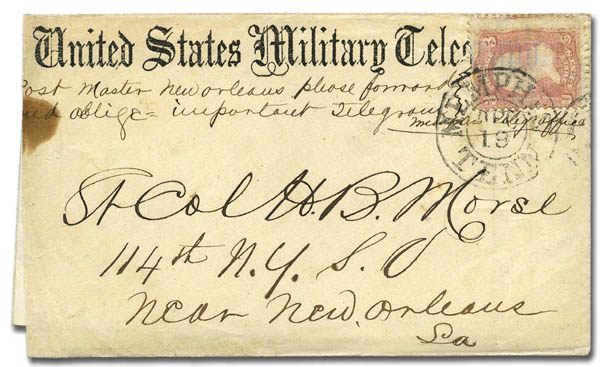 United States Military Teleg
Post Master New Orleans please forward
and oblige = important Telegram
MEMPHIS
APR
19
TENN
Lt Col H. B. Morse
114th N. Y. S. V
Near New Orleans
La